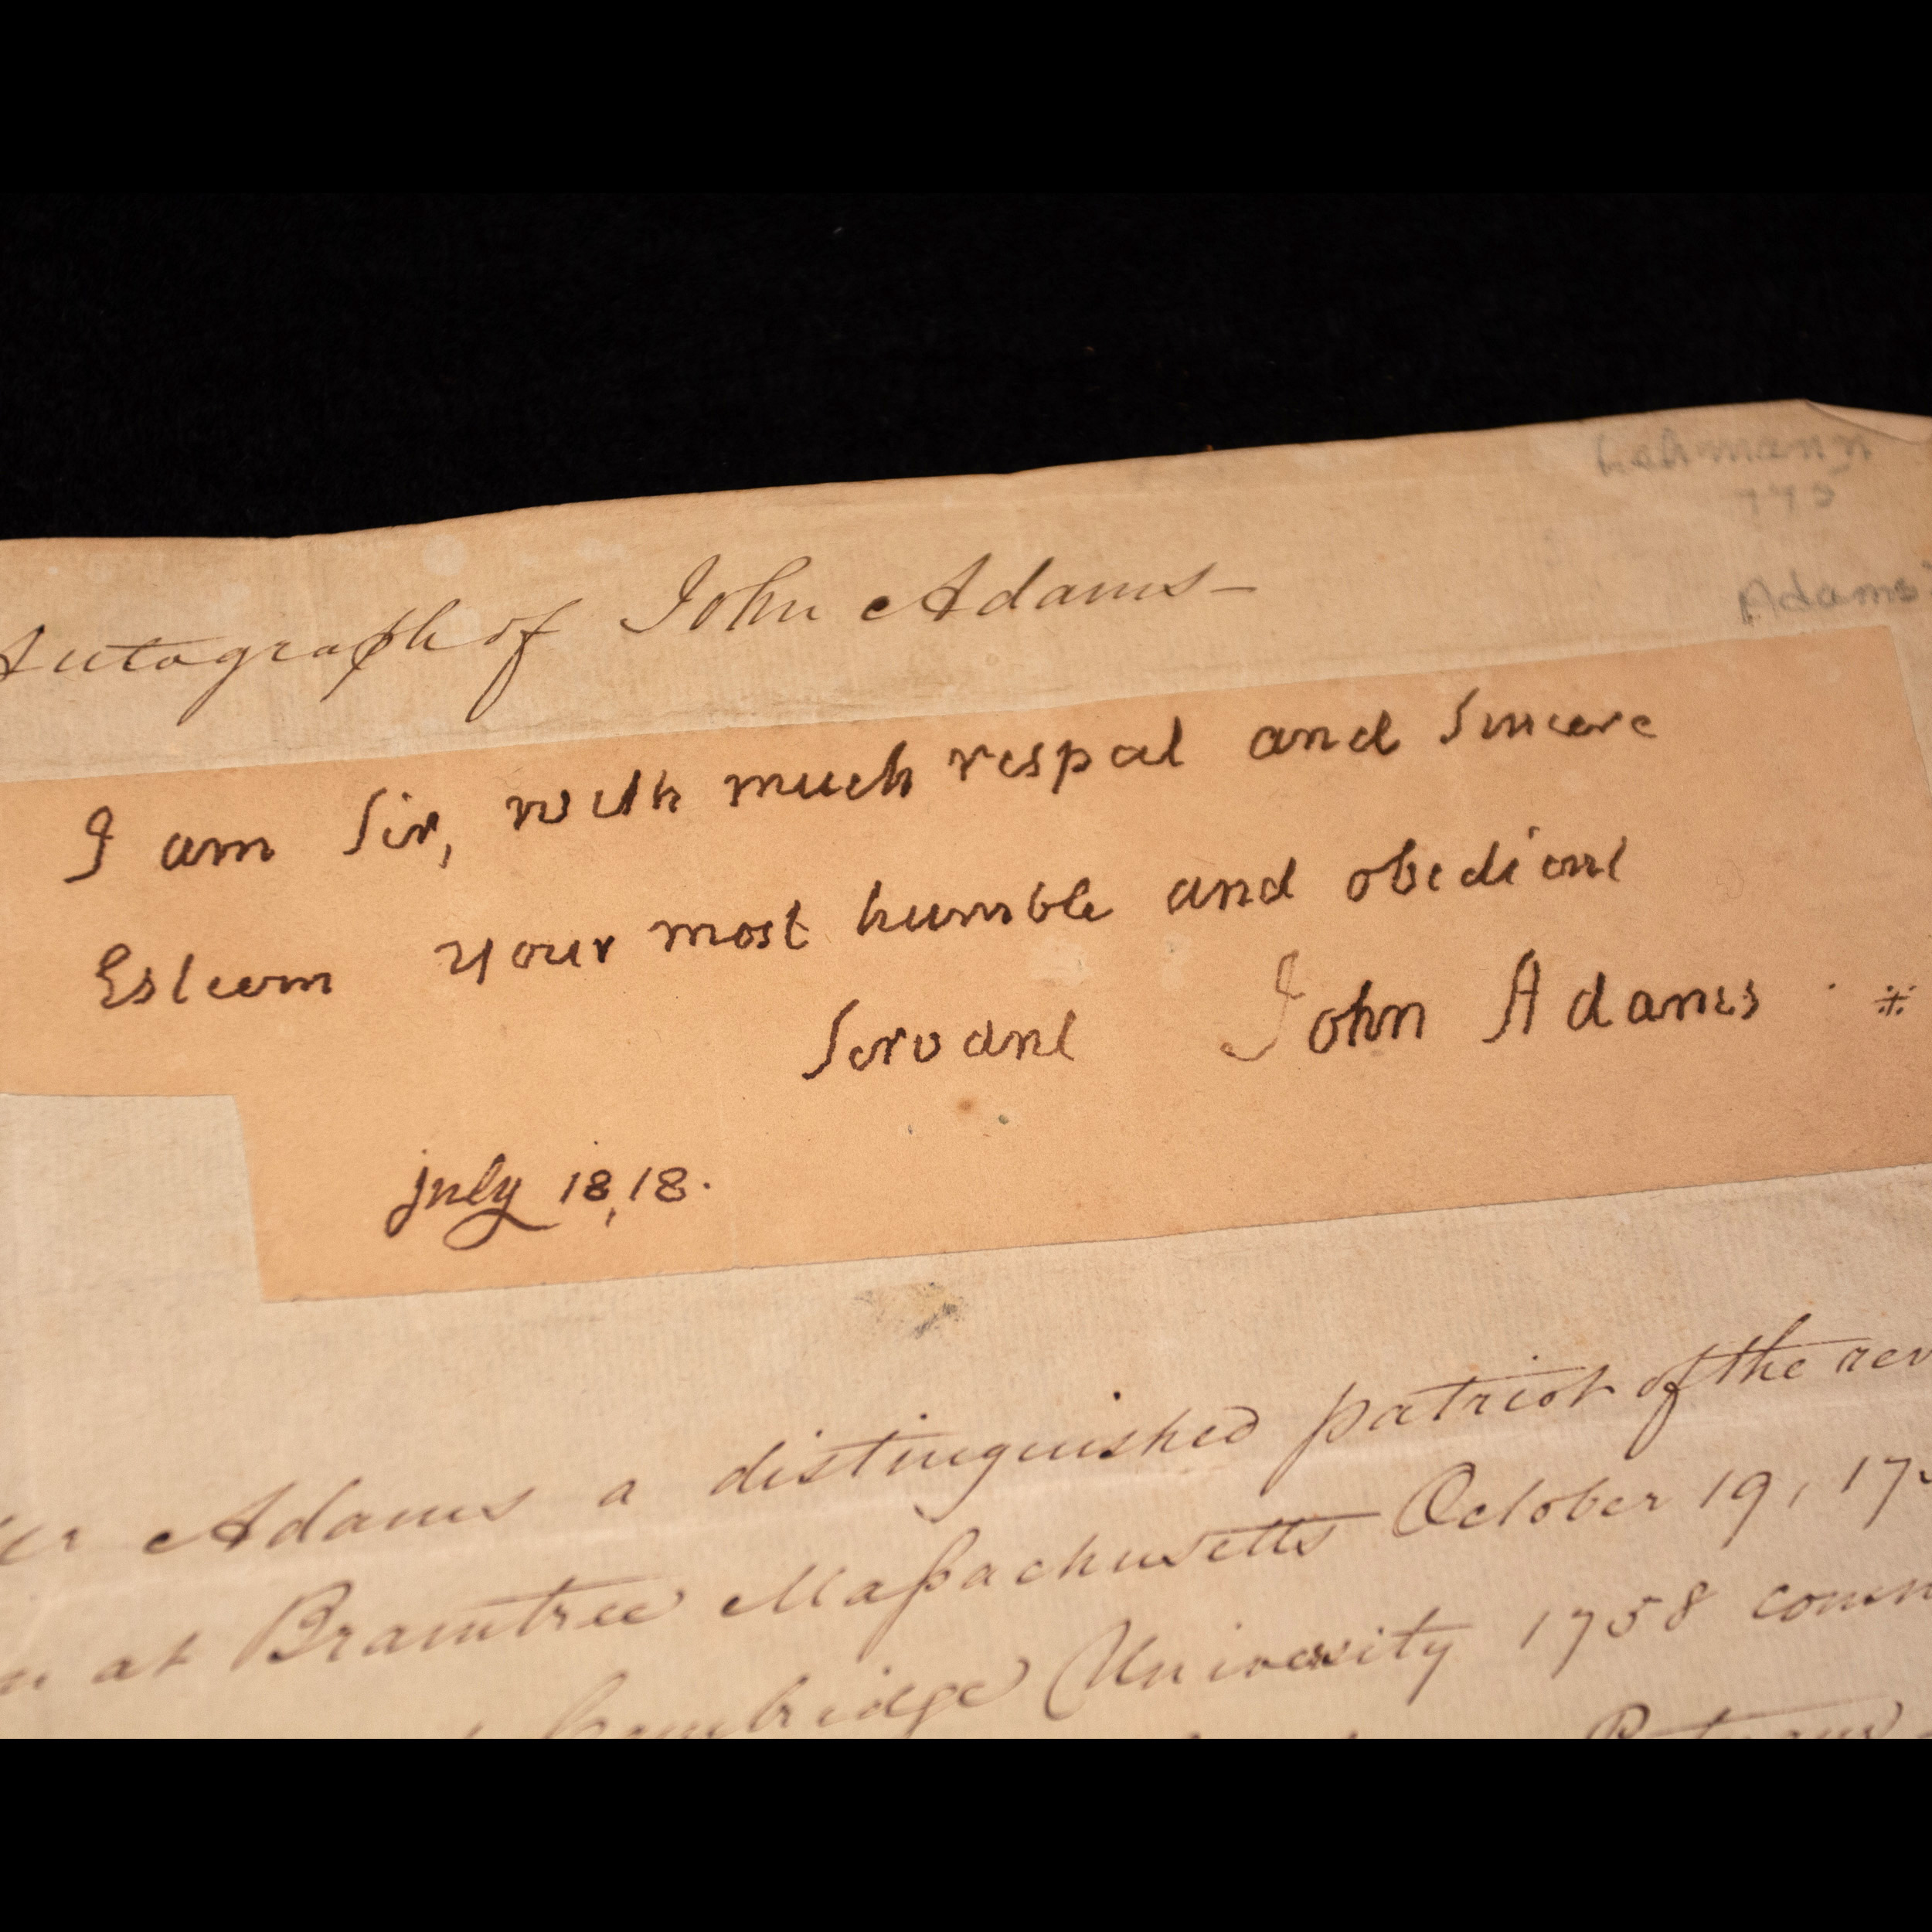 Lehmann
775
Autograph of John Adams—
Adams
I am Sir, with much respect and Sincere
Esteem your most humble and obedient
Servant John Adams
july 18,18.
Adams a distinguished patriot of the rev
at Braintree Massachusetts October 19, 17
Cambridge University 1758 comm